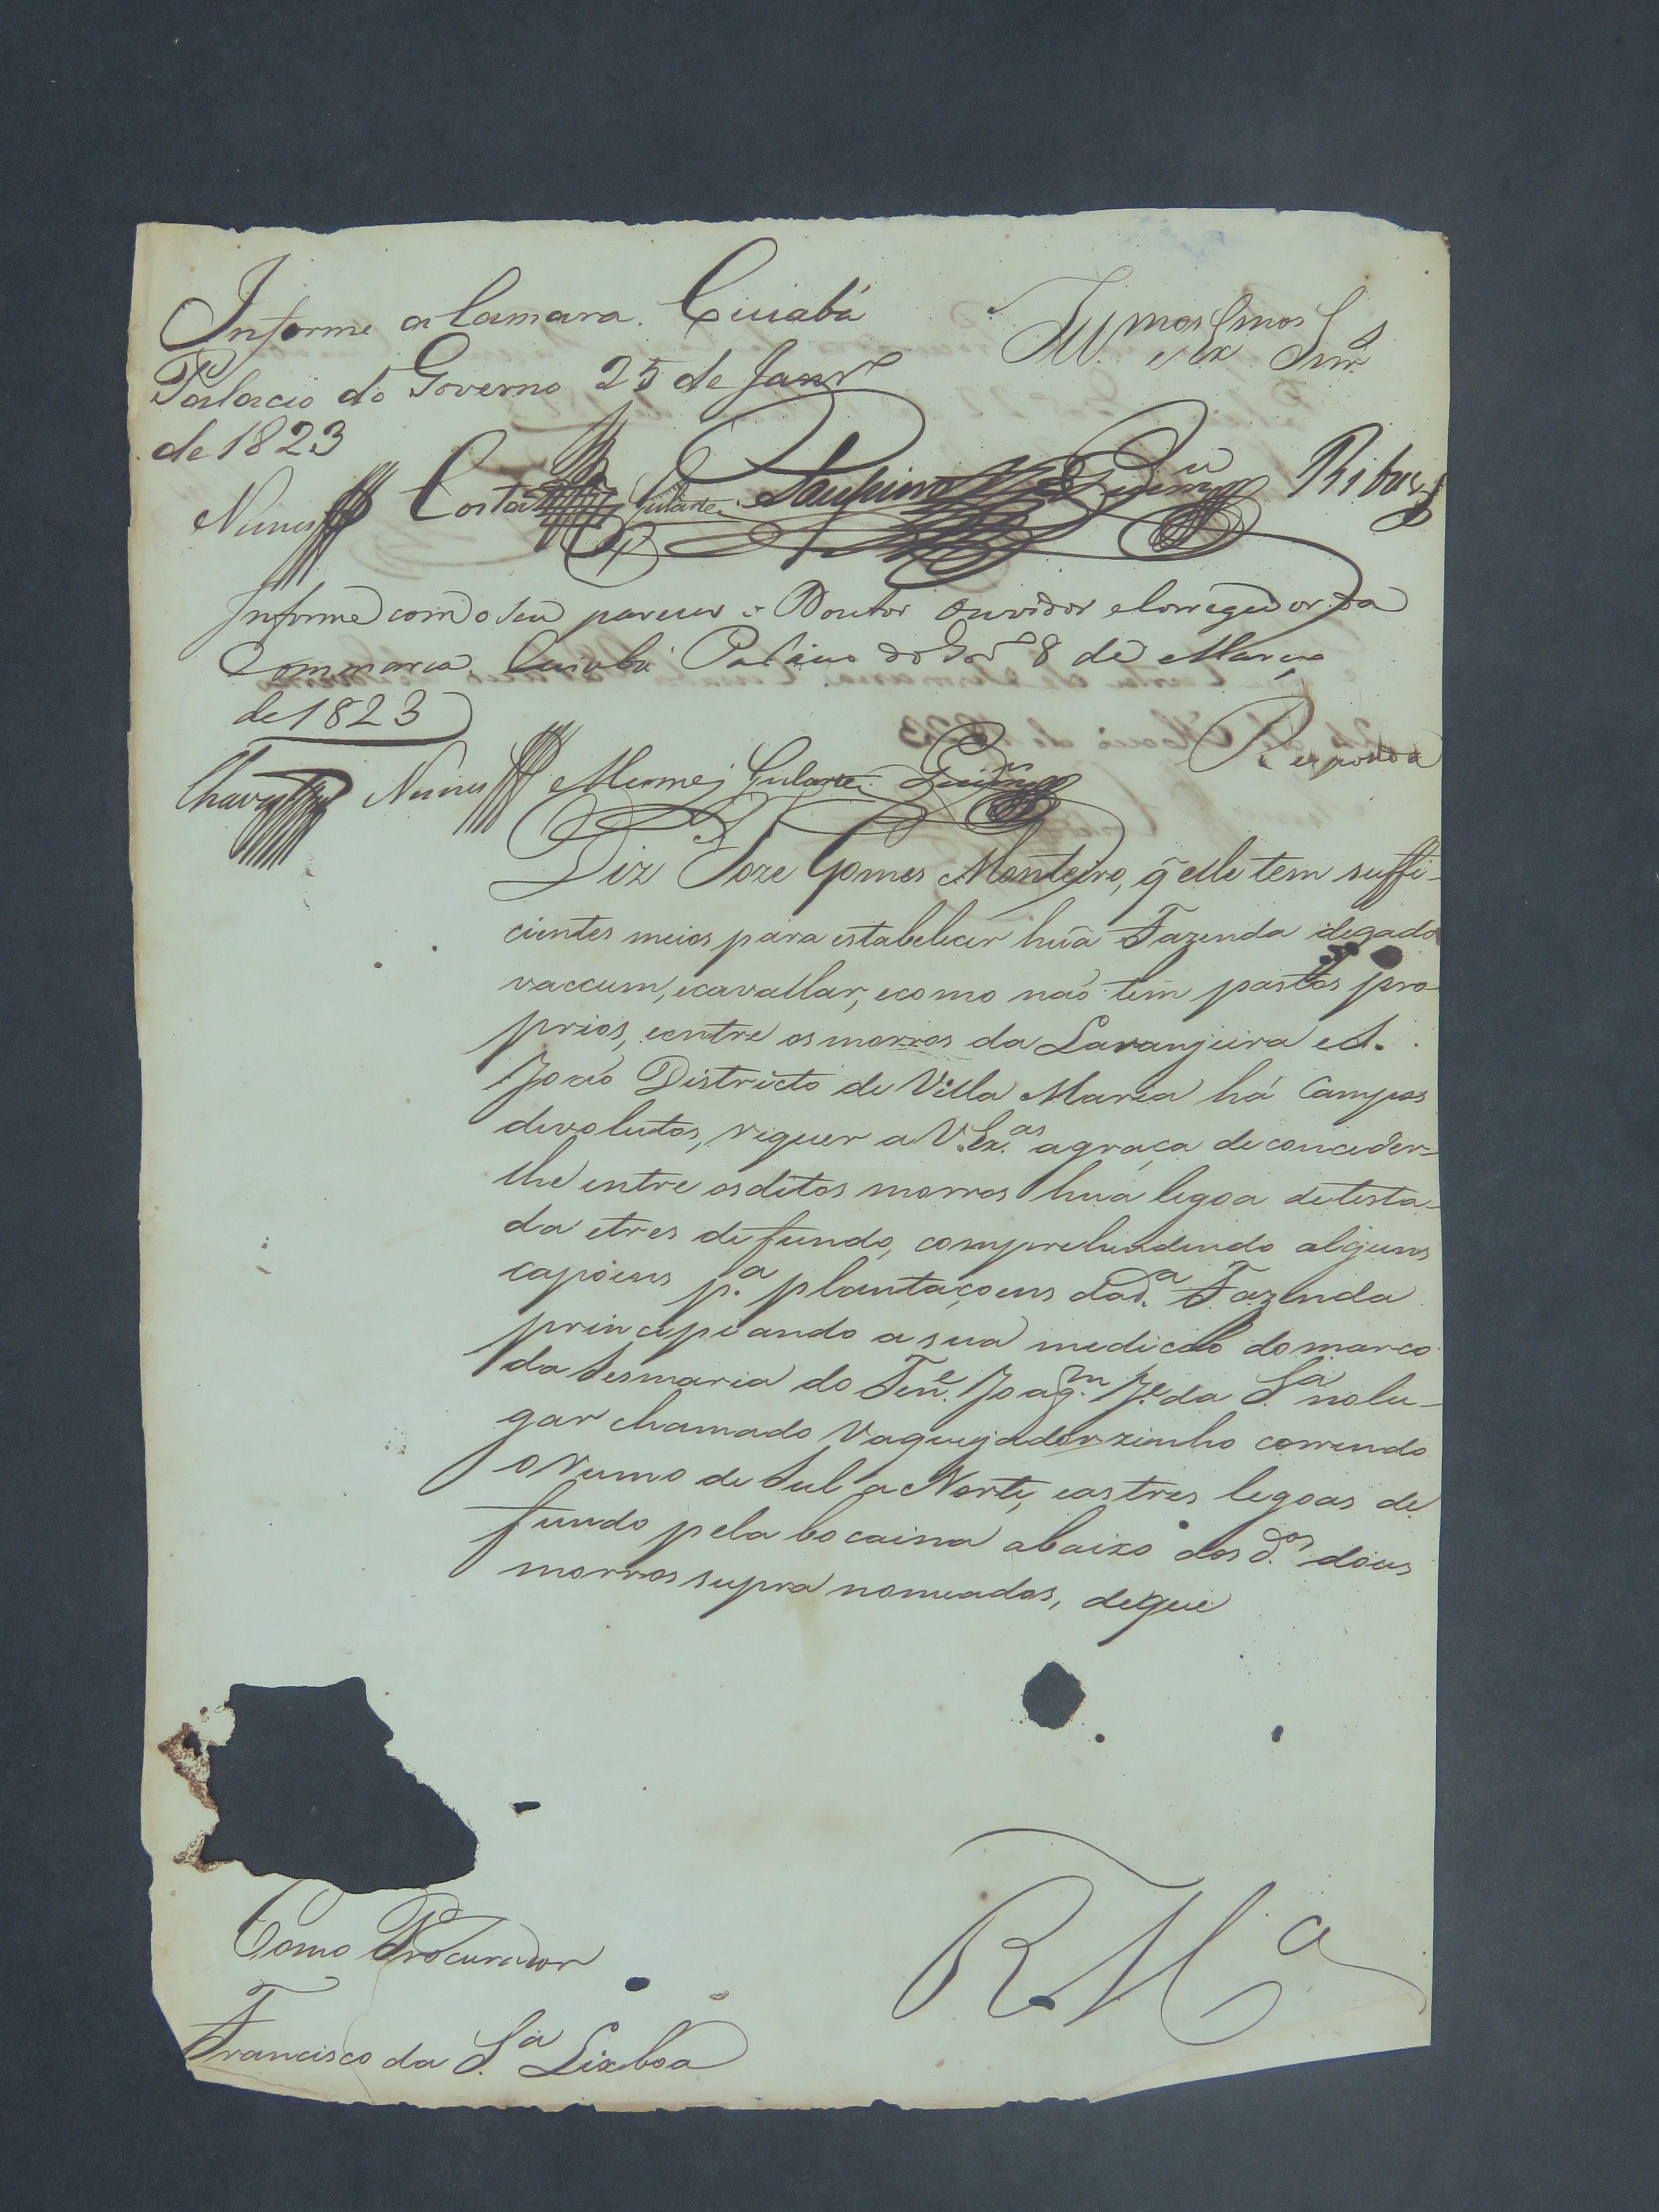 Informe a Camara. Cuiabá
Palacio do Governo 25 de Janr.º
de 1823
Ill.mos e Ex.mos Snr.s
Nunes Costa Gularte Ribas
Informe com o seu parecer o Doutor Ouvidor e Corregedor da
Commarca. Cuiabá Palacio do Gov.º 8 de Março
de 1823
Responda
Chaves Nunes Gularte
Diz Joze Gomes Monteiro, q̃ elle tem suffi-
cientes meios para estabelecer huã Fazenda degado
vaccum, ecavallar, ecomo naõ tem pastos pro-
prios, eentre os morros da Laranjeira eS.
Joaõ Districto de Villa Maria há Campos
devolutos, requer a V. Ex.as agraça de conceder-
lhe entre osditos morros hua legoa detesta-
da etres de fundo, comprehendendo alguns
capoens p.a plantaçoens dad.a Fazenda
principeando a sua medicaõ do marco
da Sesmaria do Ten.e Joaq.m J.e da S.a nolu-
gar chamado Vaquejadorzinho correndo
o rumo de Sul a Norte, eas tres legoas de
fundo pela bocaina abaixo dos d.os dous
morros supra nomeados, deque
R. M.a
Como Procurador
Francisco da S.a Lixboa